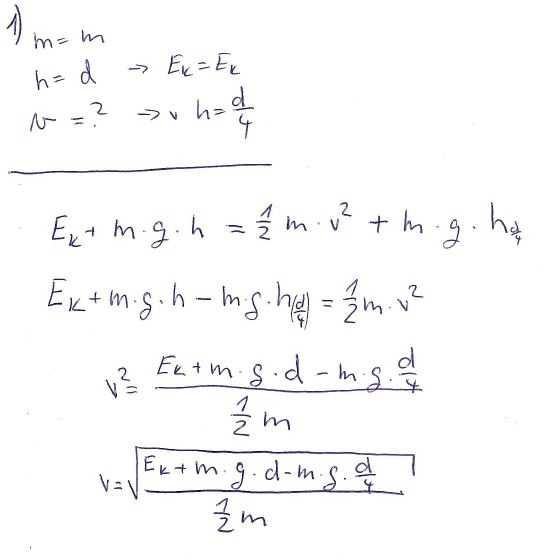 1)
m = m
h = d → Ek = Ek
v = ? → v h = d/4
Ek + m·g·h = 1/2 m·v² + m·g·h d/4
Ek + m·g·h - m·g·h(d/4) = 1/2 m·v²
v² = (Ek + m·g·d - m·g·d/4) / (1/2 m)
v = √((Ek + m·g·d - m·g·d/4) / (1/2 m))